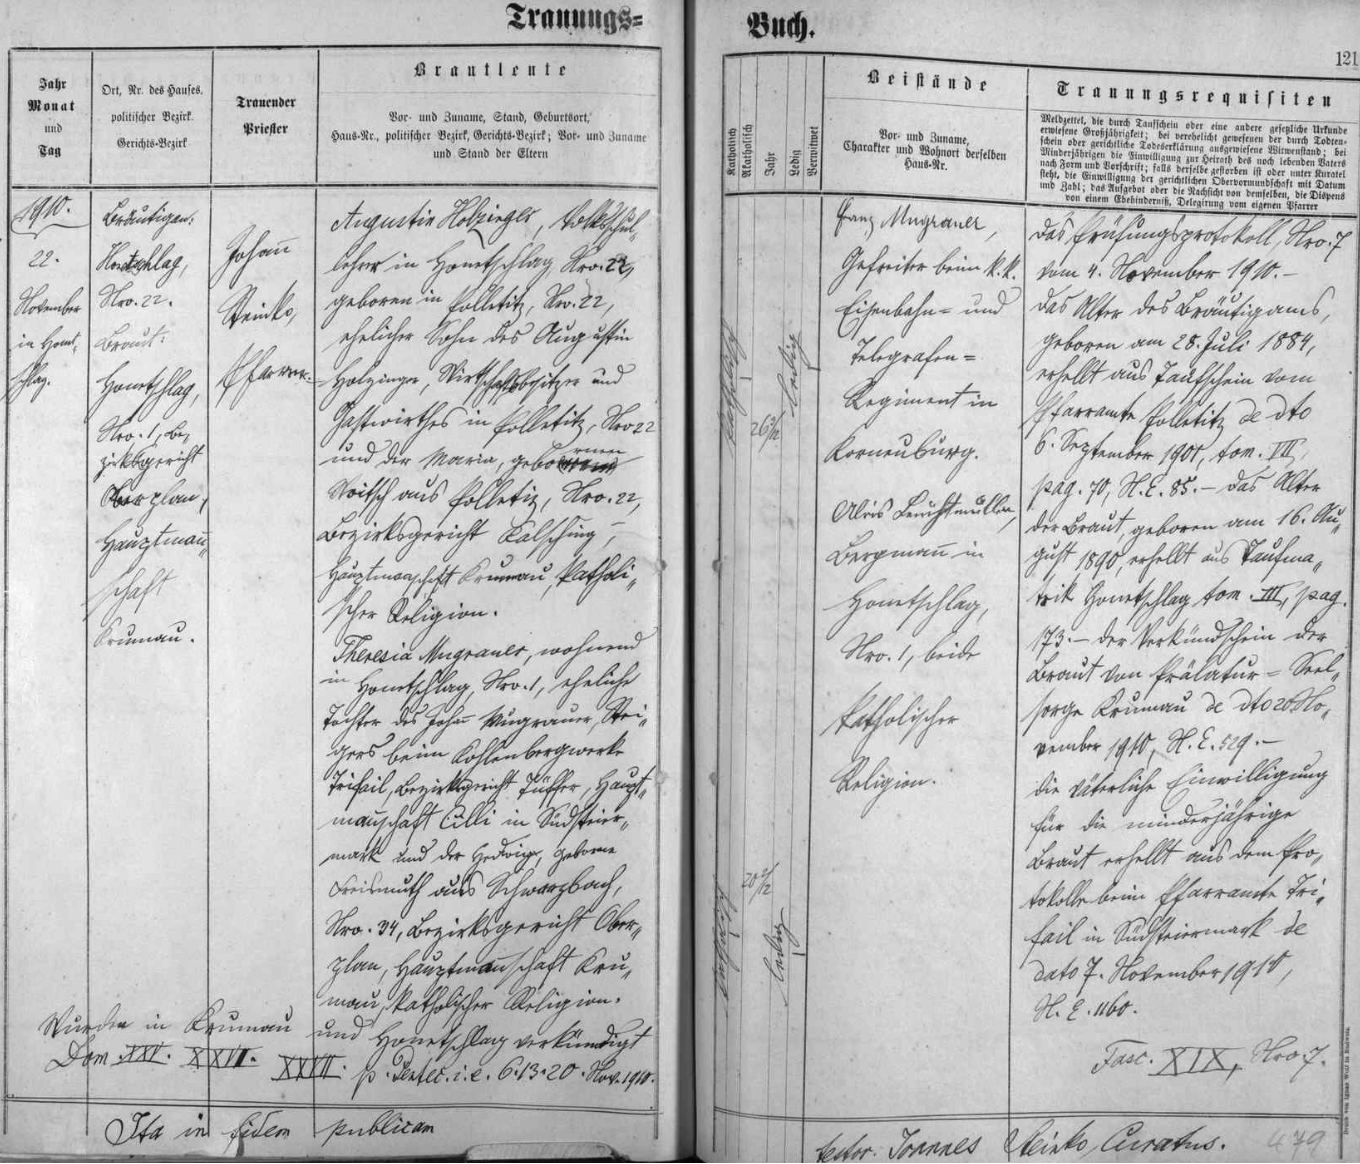 Trauungs=
Buch.
121
Jahr
Monat
und
Tag
Ort, Nr. des Hauses.
politischer Bezirk.
Gerichts-Bezirk
Trauender
Priester
Brautleute
Vor- und Zuname, Stand, Geburtsort,
Haus-Nr., politischer Bezirk, Gerichts-Bezirk; Vor- und Zuname
und Stand der Eltern
1910.
22.
November
in Honet-
schlag.
Bräutigam:
Honetschlag,
Nro. 22.
Braut:
Honetschlag,
Nro. 1, Be-
zirksgericht
Oberplan,
Hauptman„
schaft
Krumau.
Johann
Steinko,
Pfarrer.
Augustin Holzinger, Volksschul-
lehrer in Honetschlag, Nro. 22,
geboren in Polletitz, Nro. 22,
ehelicher Sohn des Augustin
Holzinger, Wirtschaftsbesitzer und
Gastwirthes in Polletitz, Nro 22
und der Maria, geborenen
Woitsch aus Polletiz, Nro. 22,
Bezirksgericht Kalsching,
Hauptmanschaft Krumau, katholi„
scher Religion.
Theresia Mugrauer, wohnend
in Honetschlag, Nro. 1, eheliche
Tochter des Johann Mugrauer, Stei„
gers beim Kohlenbergwerke
Trifail, Bezirksgericht Tüffer, Haupt„
mannschaft Cilli in Südsteier„
mark und der Hedwig, geborne
Freismuth aus Schwarzbach,
Nro. 34, Bezirksgericht Ober„
plan, Hauptmannschaft Kru„
mau, katholischer Religion.
Wurden in Krumau und Honetschlag verkündigt
Dom. XXV. XXVI. XXVII. p. Pentec. i. e. 6. 13. 20. Nov. 1910.
Ita in fidem publicam
Katholisch
Akatholisch
Jahr
Ledig
Verwitwet
Beistände
Vor- und Zuname,
Charakter und Wohnort derselben
Haus-Nr.
Trauungsrequisiten
Meldzettel, die durch Taufschein oder eine andere gesetzliche Urkunde
erwiesene Großjährigkeit; bei verehelicht gewesenen der durch Todten-
schein oder gerichtliche Todeserklärung ausgewiesene Witwenstand; bei
Minderjährigen die Einwilligung zur Heirath des noch lebenden Vaters
nach Form und Vorschrift; falls derselbe gestorben ist oder unter Kuratel
steht, die Einwilligung der gerichtlichen Obervormundschaft mit Datum
und Zahl; das Aufgebot oder die Nachsicht von demselben, die Dispens
von einem Ehehinderniß, Delegirung vom eigenen Pfarrer
katholisch
ledig
katholisch
ledig
Franz Mugrauer,
Gefreiter beim k. k.
Eisenbahn= und
Telegrafen=
Regiment in
Korneuburg.
Alois Leuchtmüller,
Bergmann in
Honetschlag,
Nro. 1, beide
katholischer
Religion.
Das Prüfungsprotokoll, Nro. 7
vom 4. November 1910.-
Das Alter des Bräutigams,
geboren am 28. Juli 1884,
erhellt aus Taufschein vom
Pfarramte Polletitz de dto
6. September 1901, tom. VII,
pag. 70, N. E. 85.- Das Alter
der Braut, geboren am 16. Au„
gust 1890, erhellt aus Taufma„
trik Honetschlag tom. III, pag.
173.- Der Verkündschein der
Braut von Prälatur= Seel„
sorge Krumau de dto 20 No„
vember 1910, N. E. 529.-
Die väterliche Einwilligung
für die minderjährige
Braut erhellt aus dem Pro„
tokolle beim Pfarramte Tri„
fail in Südsteiermark de
dato 7. November 1910,
N. E. 1160.
Fasc. XIX, Nro 7.
testor. Joannes Steinko, Curatus.
479